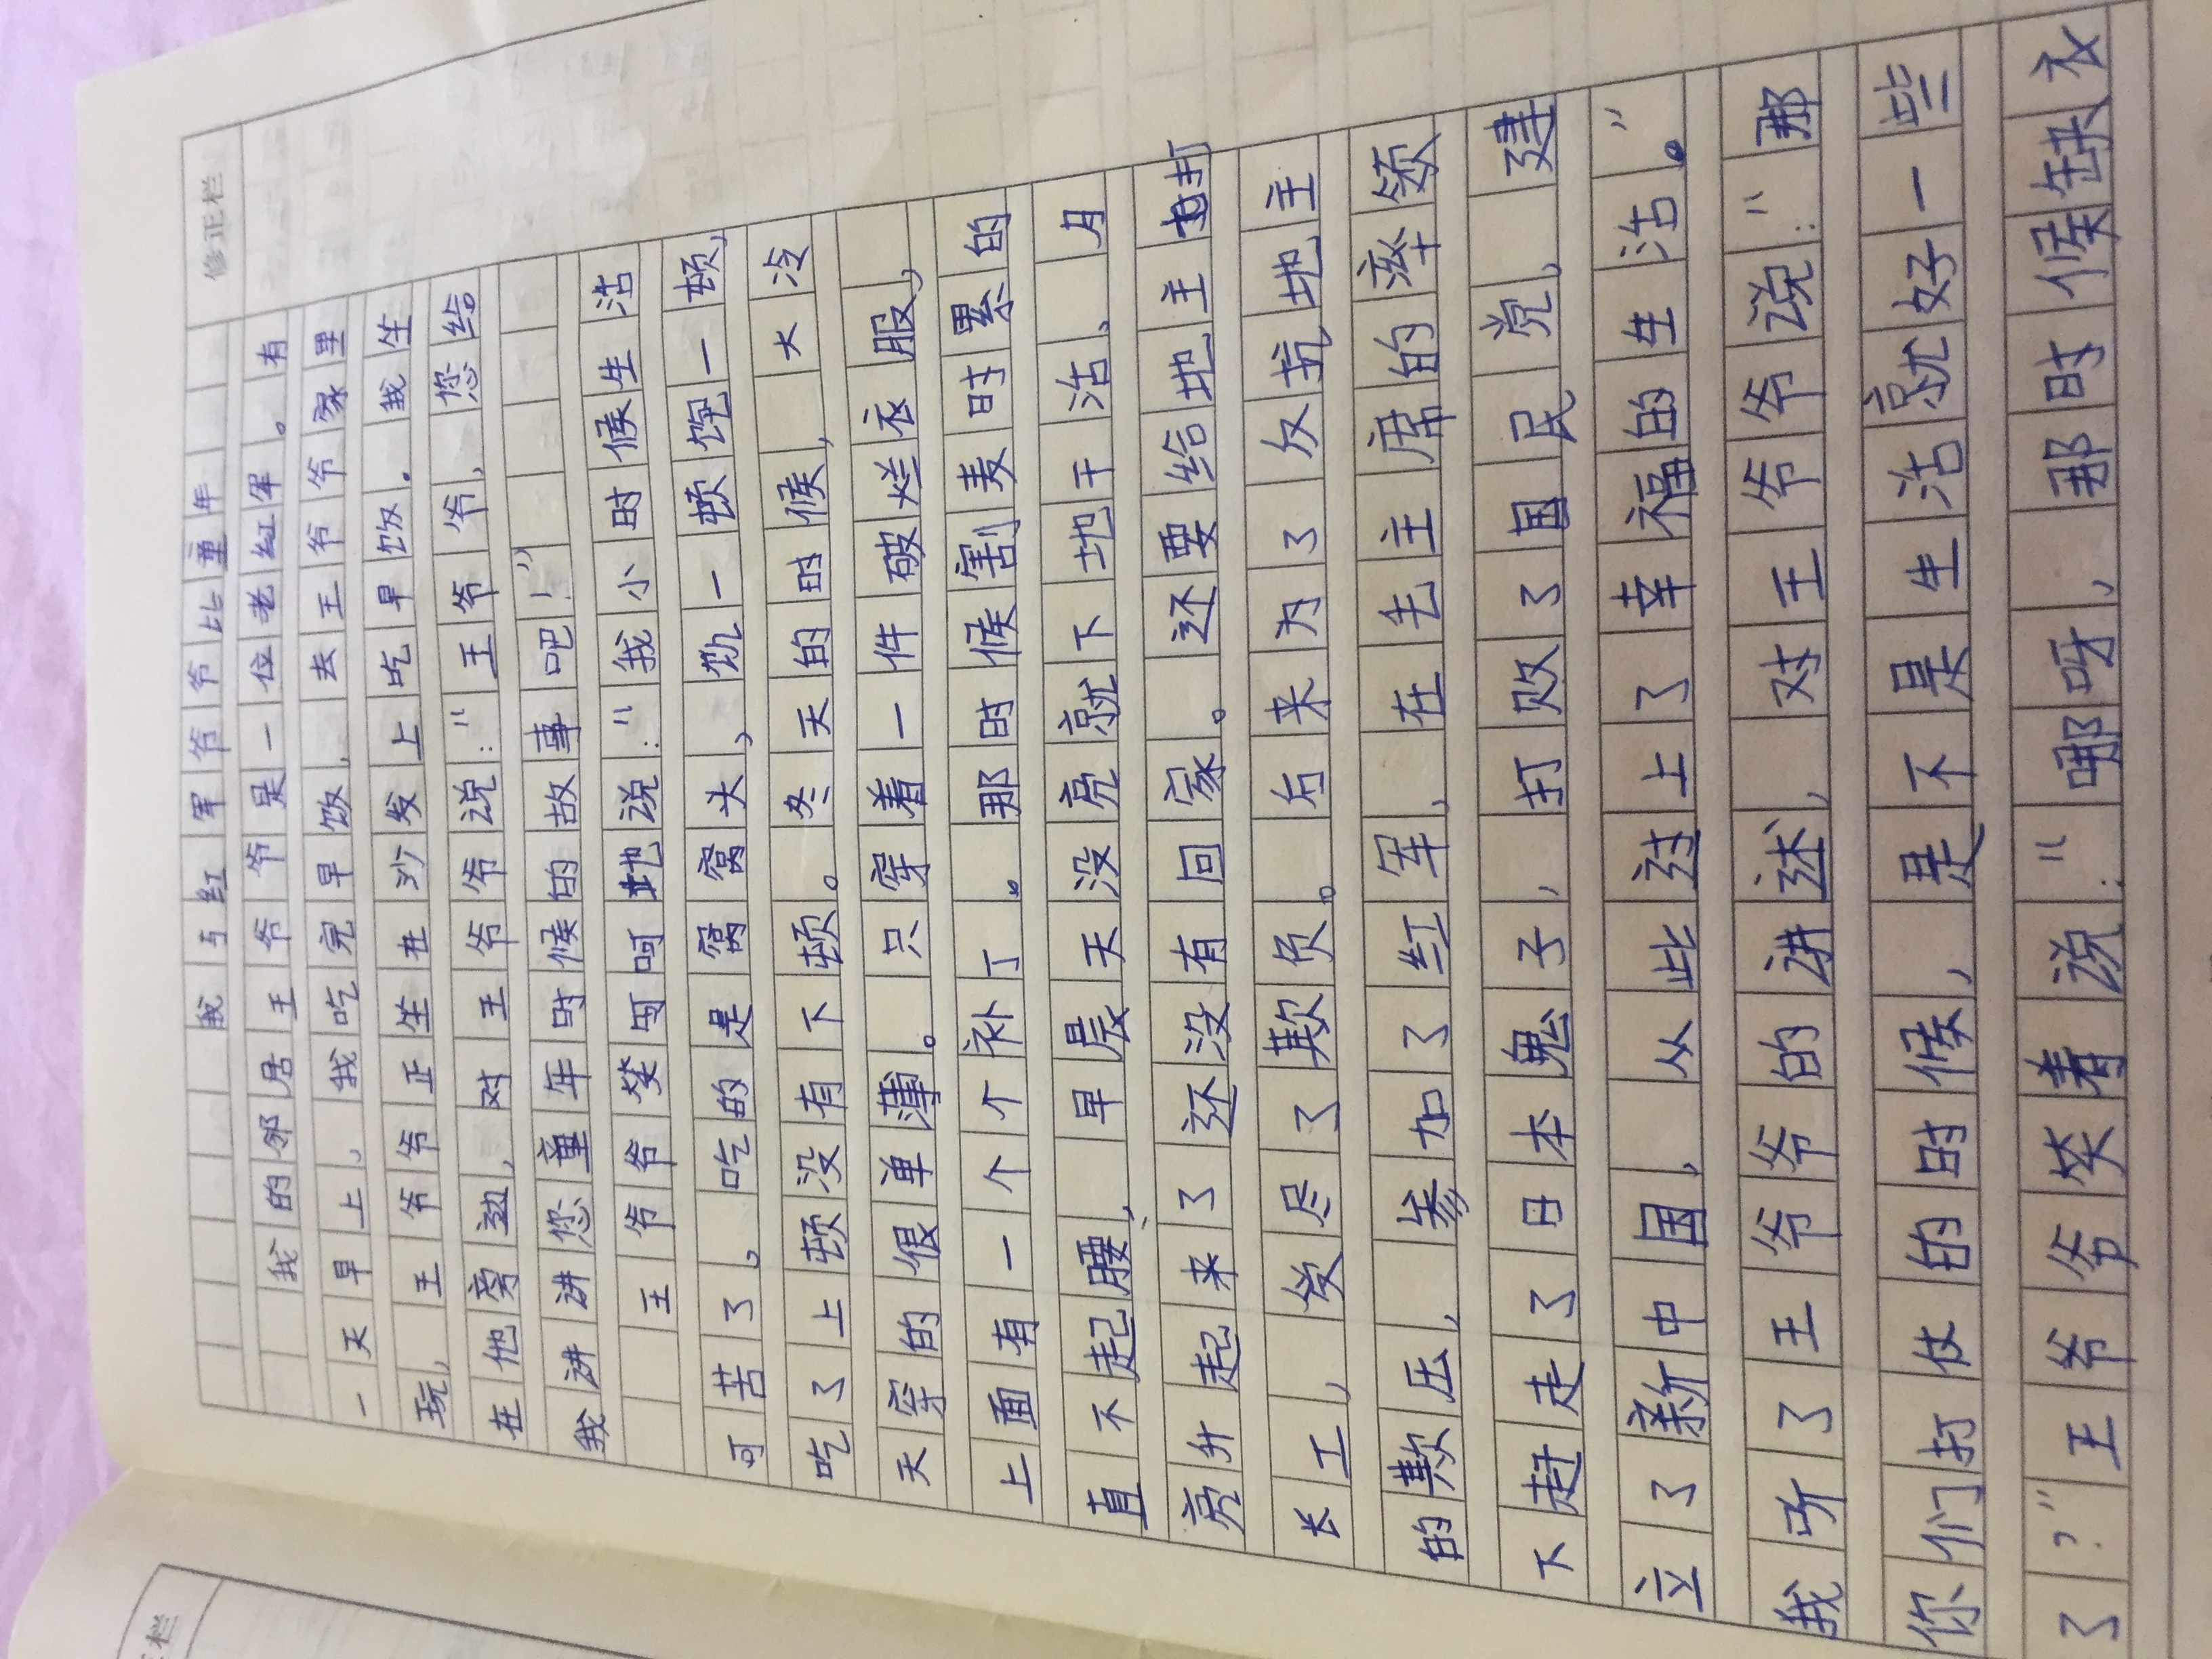 修正栏
我与红军爷爷比童年
我的邻居王爷爷是一位老红军。有
一天早上,我吃完早饭,去王爷爷家里
玩,王爷爷正坐在沙发上吃早饭。我坐
在他旁边,对王爷爷说:“王爷爷,您给
我讲讲您童年时候的故事吧!”
王爷爷笑呵呵地说:“我小时候生活
可苦了。吃的是窝窝头,饥一顿饱一顿,
吃了上顿没有下顿。冬天的时候,大冷
天穿的很单薄。只穿着一件破烂衣服,
上面有一个个补丁。那时候割麦时累的
直不起腰,早晨天没亮就下地干活、月
亮升起来了还没有回家。还要给地主打
长工,受尽了欺负。后来为了反抗地主
的欺压,参加了红军,在毛主席的率领
下赶走了日本鬼子,打败了国民党,建
立了新中国,从此过上了幸福的生活。”
我听了王爷爷的讲述,对王爷爷说:“那
你们打仗的时候,是不是生活就好一些
了?”王爷爷笑着说:“哪呀,那时候缺衣
栏